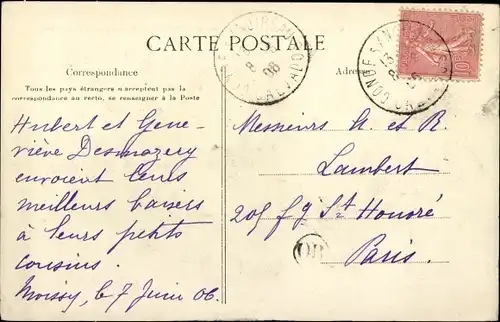 CARTE POSTALE
Correspondance
Tous les pays étrangers n'acceptent pas la
correspondance au recto, se renseigner à la Poste
Adresse
Hubert et Gene-
viève Desmazery
envoient leurs
meilleurs baisers
à leurs petits
cousins.
Moissy, le 7 Juin 06.
Messieurs H. et R.
Lambert
205 fg St Honoré
Paris.
OR